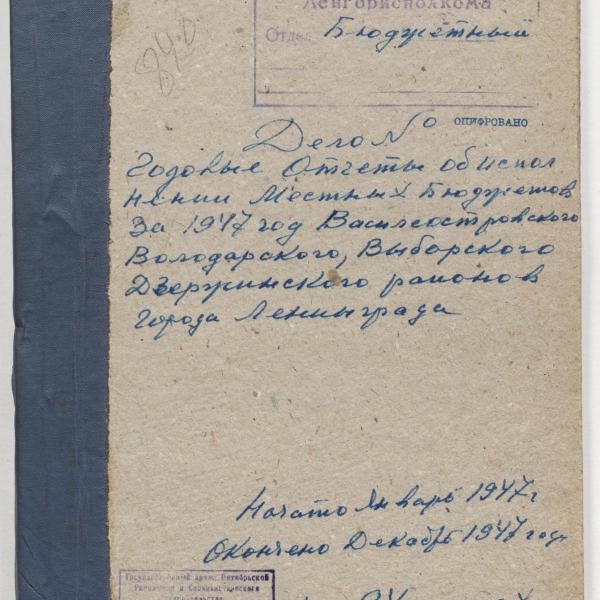 Ленгорисполкома
Отдел Бюджетный
840
ОЦИФРОВАНО
Дело №
Годовые Отчеты об испол
нении Местных Бюджетов
За 1947 год Василеостровского
Володарского, Выборского
Дзержинского районов
города Ленинграда
Начато Январь 1947 г
Окончено Декабрь 1947 года
Государственный архив Октябрьской
Революции и Социалистического